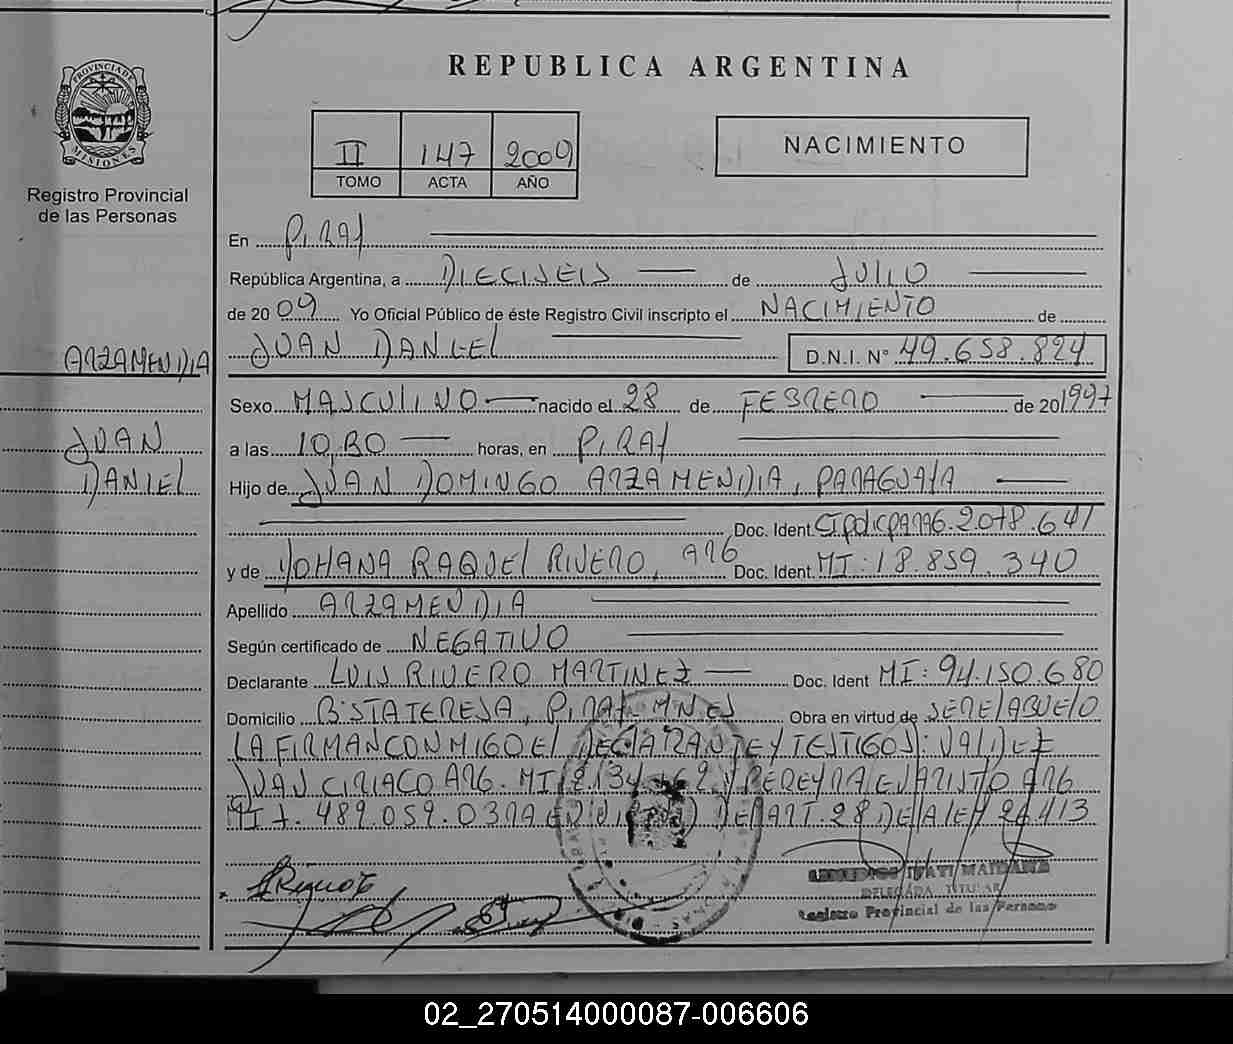 PROVINCIA DE
MISIONES
Registro Provincial
de las Personas
REPUBLICA ARGENTINA
II 147 2009
TOMO ACTA AÑO
NACIMIENTO
En PIRAY
República Argentina, a DIECISEIS de JULIO
de 2009 Yo Oficial Público de éste Registro Civil inscripto el NACIMIENTO de
JUAN DANIEL D.N.I. N° 49.658.824
ARZAMENDIA
JUAN
DANIEL
Sexo MASCULINO nacido el 28 de FEBRERO de 201997
a las 10,30 horas, en PIRAY
Hijo de JUAN DOMINGO ARZAMENDIA, PARAGUAYA
Doc. Ident. 2.078.641
y de YOHANA RAQUEL RIVERO, ARG Doc. Ident. MI: 18.859.340
Apellido ARZAMENDIA
Según certificado de NEGATIVO
Declarante LUIS RIVERO MARTINEZ Doc. Ident MI: 94.150.680
Domicilio B° STA TERESA, PIRAY-MNES Obra en virtud de SER EL ABUELO
LA FIRMAN CONMIGO EL DECLARANTE Y TESTIGOS: VALDEZ
JUAN CIRIACO ARG. MI y PEREYRA EVARISTO ARG
MI 7.489.059. DEL ART. 28 DE LA LEY 26.413
DELEGADA TITULAR
Registro Provincial de las Personas
02_270514000087-006606